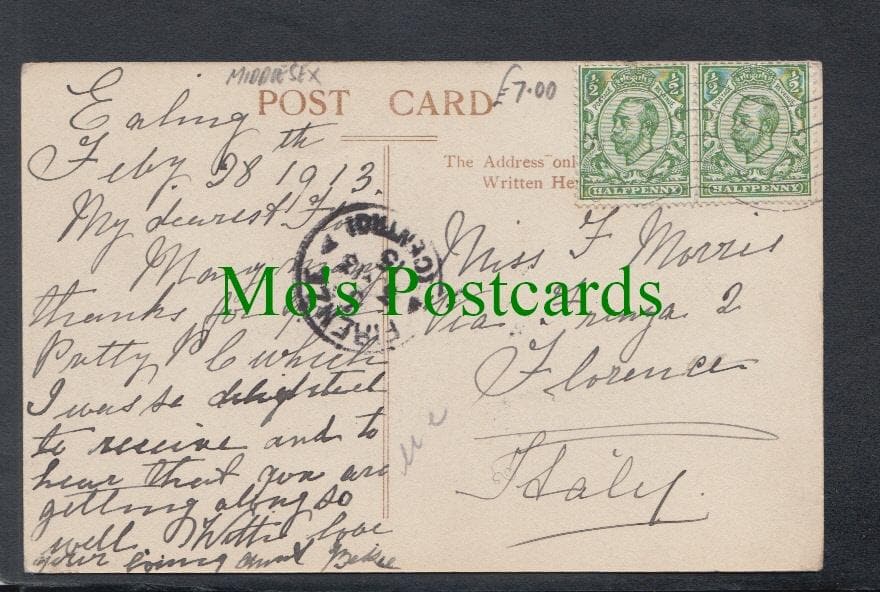 MIDDLESEX
POST CARD
£7.00
½ ½
POSTAGE REVENUE
HALFPENNY
½ ½
POSTAGE REVENUE
HALFPENNY
The Address onl
Written He
Ealing
Feby. 28th 1913.
My dearest
Many
thanks for
Pretty P C which
I was so delighted
to receive and to
hear that you are
getting along so
well With love
your loving Aunt
FIRENZE
Miss F Morris
Via 2
Florence
Italy.
Mo's Postcards